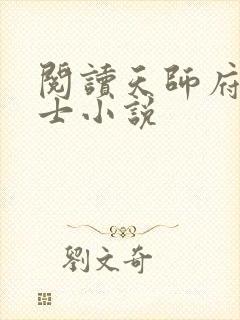 閱讀天師府
士小說
劉文奇